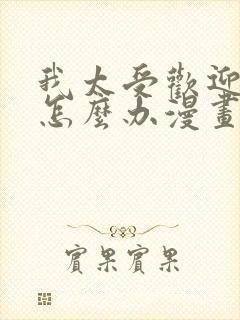 我太受歡迎
怎麼办漫畫
實果實果